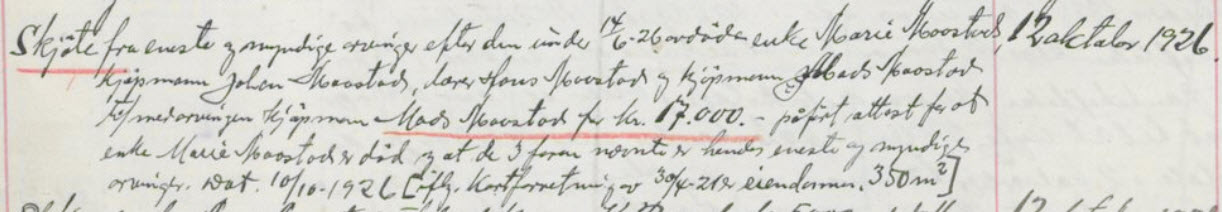 Skjøte fra eneste og myndige arvinger efter den under 14/6-26 avdøde enke Marie Moostad, 12 oktober 1926.
kjøpmann Johan Moostad, lærer Hans Moostad og kjøpmann Mads Moostad
til medarvingen kjøpmann Mads Moostad for kr. 17.000.- påført attest for at
enke Marie Moostad er død og at de 3 foran nevnte er hendes eneste og myndige
arvinger. Dat. 10/10-1926 [iflg. kartforretning av 30/4-21 er eiendommen 350 m²]